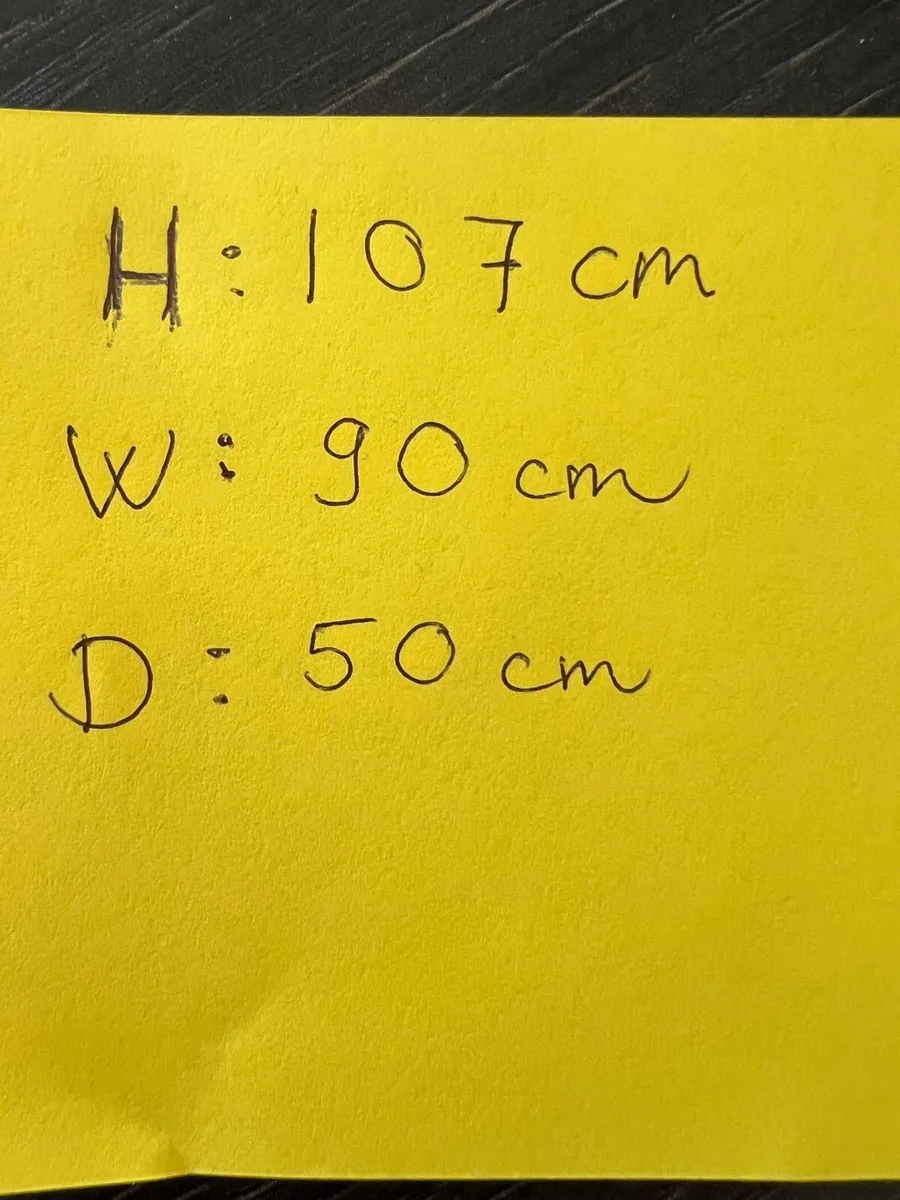 H: 107 cm
W: 90 cm
D: 50 cm